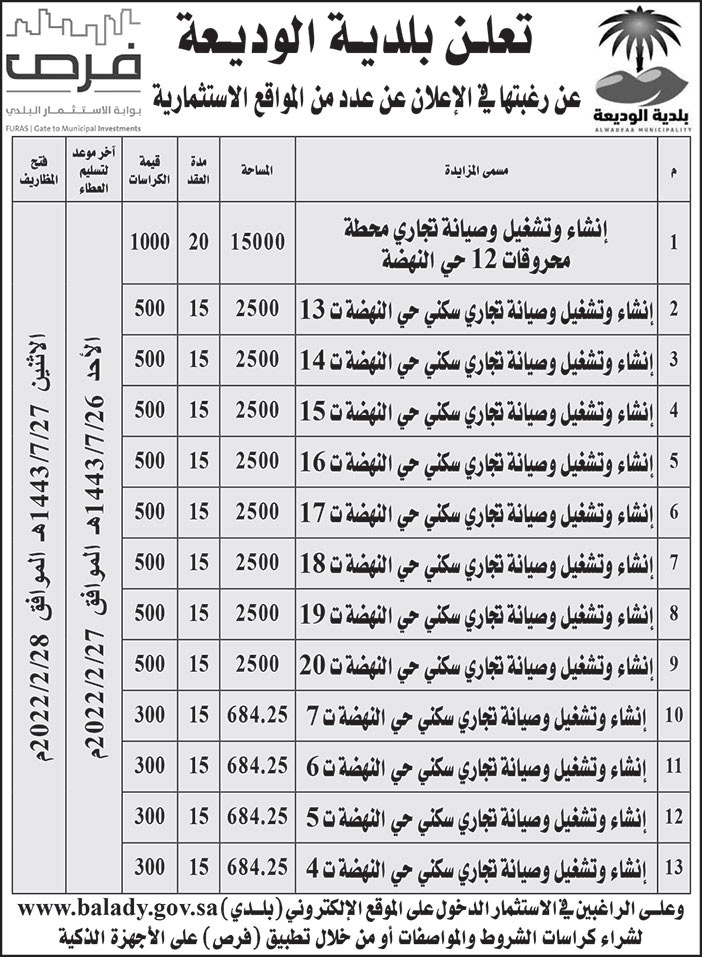 تعلن بلدية الوديعة
عن رغبتها في الإعلان عن عدد من المواقع الاستثمارية
بلدية الوديعة
ALWADEAA MUNICIPALITY
فرص
بوابة الاستثمار البلدي
FURAS | Gate to Municipal Investments
م مسمى المزايدة المساحة مدة العقد قيمة الكراسات آخر موعد لتسليم العطاء فتح المظاريف
1 إنشاء وتشغيل وصيانة تجاري محطة محروقات 12 حي النهضة 15000 20 1000
2 إنشاء وتشغيل وصيانة تجاري سكني حي النهضة ت 13 2500 15 500
3 إنشاء وتشغيل وصيانة تجاري سكني حي النهضة ت 14 2500 15 500
4 إنشاء وتشغيل وصيانة تجاري سكني حي النهضة ت 15 2500 15 500
5 إنشاء وتشغيل وصيانة تجاري سكني حي النهضة ت 16 2500 15 500
6 إنشاء وتشغيل وصيانة تجاري سكني حي النهضة ت 17 2500 15 500
7 إنشاء وتشغيل وصيانة تجاري سكني حي النهضة ت 18 2500 15 500
8 إنشاء وتشغيل وصيانة تجاري سكني حي النهضة ت 19 2500 15 500
9 إنشاء وتشغيل وصيانة تجاري سكني حي النهضة ت 20 2500 15 500
10 إنشاء وتشغيل وصيانة تجاري سكني حي النهضة ت 7 684.25 15 300
11 إنشاء وتشغيل وصيانة تجاري سكني حي النهضة ت 6 684.25 15 300
12 إنشاء وتشغيل وصيانة تجاري سكني حي النهضة ت 5 684.25 15 300
13 إنشاء وتشغيل وصيانة تجاري سكني حي النهضة ت 4 684.25 15 300
الأحد 1443/7/26هـ الموافق 2022/2/27م
الاثنين 1443/7/27هـ الموافق 2022/2/28م
وعلى الراغبين في الاستثمار الدخول على الموقع الإلكتروني (بلدي) www.balady.gov.sa
لشراء كراسات الشروط والمواصفات أو من خلال تطبيق (فرص) على الأجهزة الذكية